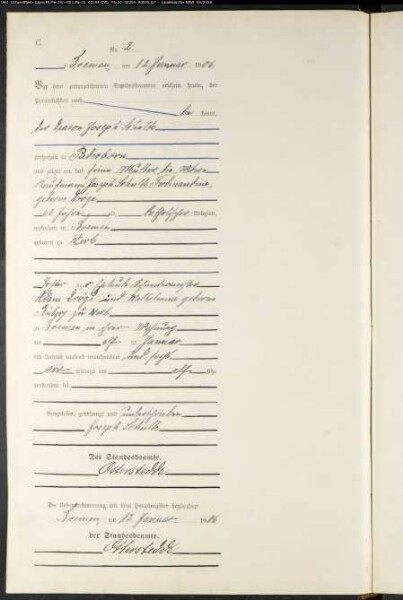 C.
Nr. 2.
Bremen, am 12 Januar 1906
Vor dem unterzeichneten Standesbeamten erschien heute, der
Persönlichkeit nach
kannt,
der Joseph Schulte
wohnhaft in Paderborn
und zeigte an, daß seine Mutter, die Witwe
Kaufmann Joseph Schulte Ferdinandine,
geborene Dröge
66 Jahre katholischer Religion,
wohnhaft in Bremen
geboren zu
Tochter der Eheleute Schneidermeister
Adam Dröge und Wilhelmine geborene
zu
Bremen in ihrer Wohnung
am elf ten Januar
des Jahres tausend neunhundert und sechs
vor mittags um elf Uhr
verstorben sei.
Vorgelesen, genehmigt und unterschrieben
Joseph Schulte
Der Standesbeamte.
Otterstedde
Die Uebereinstimmung mit dem Hauptregister beglaubigt
Bremen, am 12. Januar 1906
Der Standesbeamte.
Otterstedde